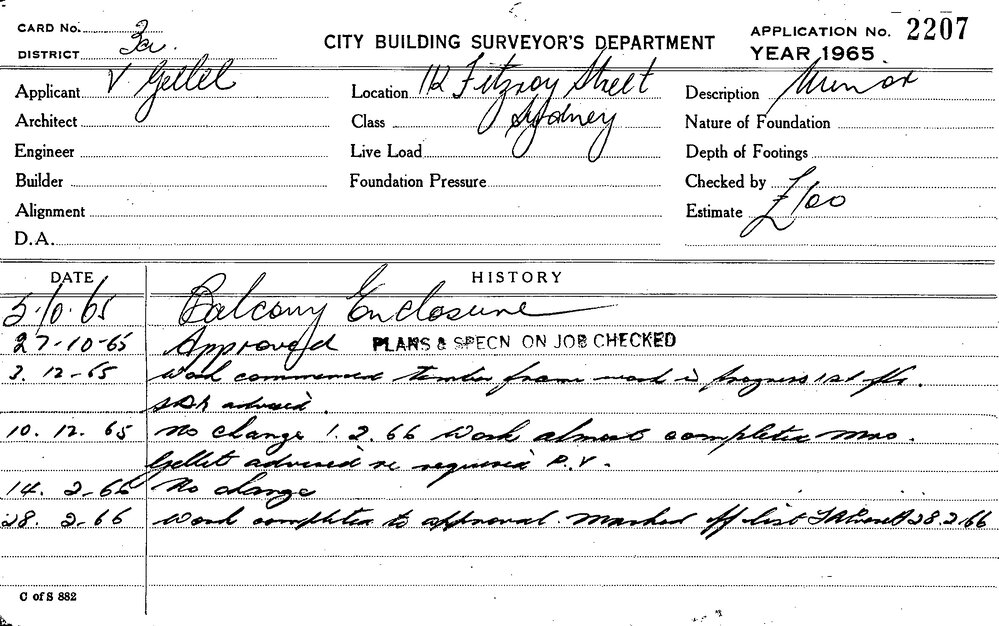 CARD No.
DISTRICT 3a.
CITY BUILDING SURVEYOR'S DEPARTMENT
APPLICATION No. 2207
YEAR 1965
Applicant V Gellel
Location 112 Fitzroy Street
Description Minor
Architect
Class Sydney
Nature of Foundation
Engineer
Live Load
Depth of Footings
Builder
Foundation Pressure
Checked by
Alignment
Estimate £100
D.A.
DATE HISTORY
5.10.65 Balcony Enclosure
27-10-65 Approved PLANS & SPECN ON JOB CHECKED
3. 12-65 Work commenced timber frame work in progress 1st flr.
advised.
10. 12. 65 No change 1. 2. 66 Work almost completed Mrs.
Gellet advised re required P.V.
14. 2-66 No change
28. 2-66 Work completed to approval. Marked off list 28.2.66
C of S 882